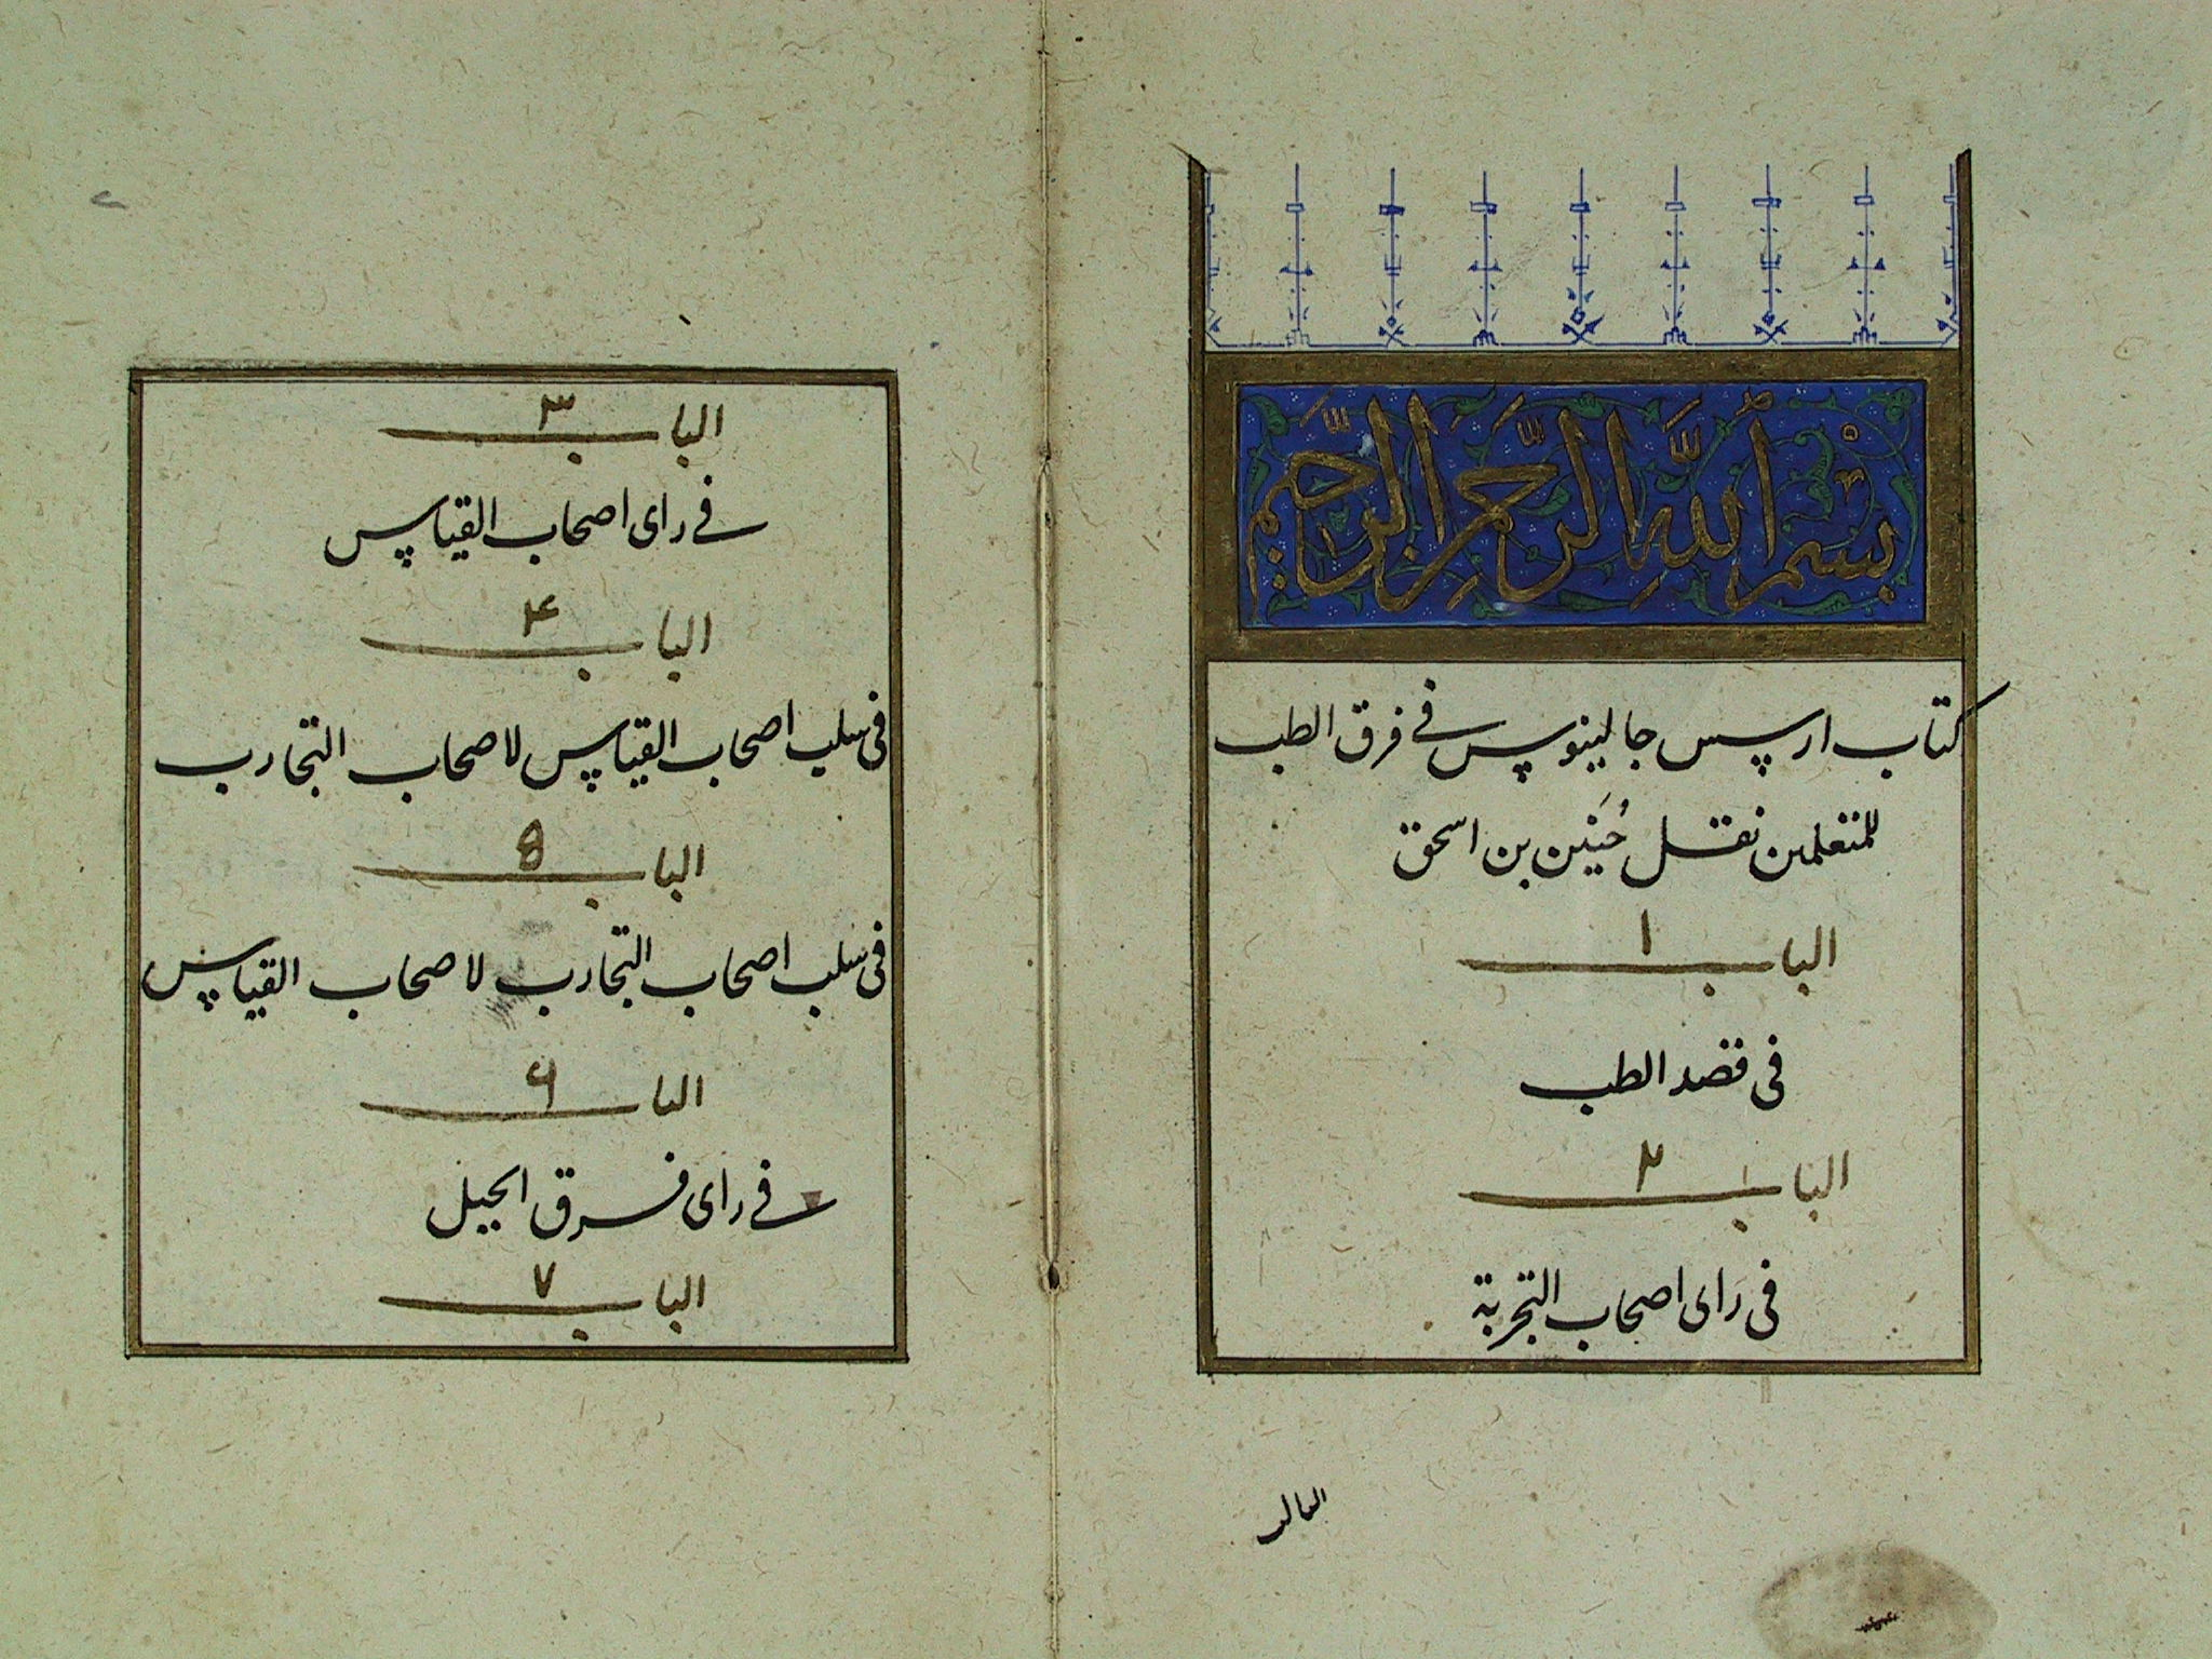 بسم الله الرحمن الرحيم
كتاب ارسس جالينوس في فرق الطب
للمتعلمين نقل حنين بن اسحق
الباب ١
في قصد الطب
الباب ٢
في راى اصحاب التجربة
الباب ٣
في راى اصحاب القياس
الباب ۴
في سلب اصحاب القياس لاصحاب التجارب
الباب ۵
في سلب اصحاب التجارب لاصحاب القياس
الباب ۶
في راى فرق الحيل
الباب ٧